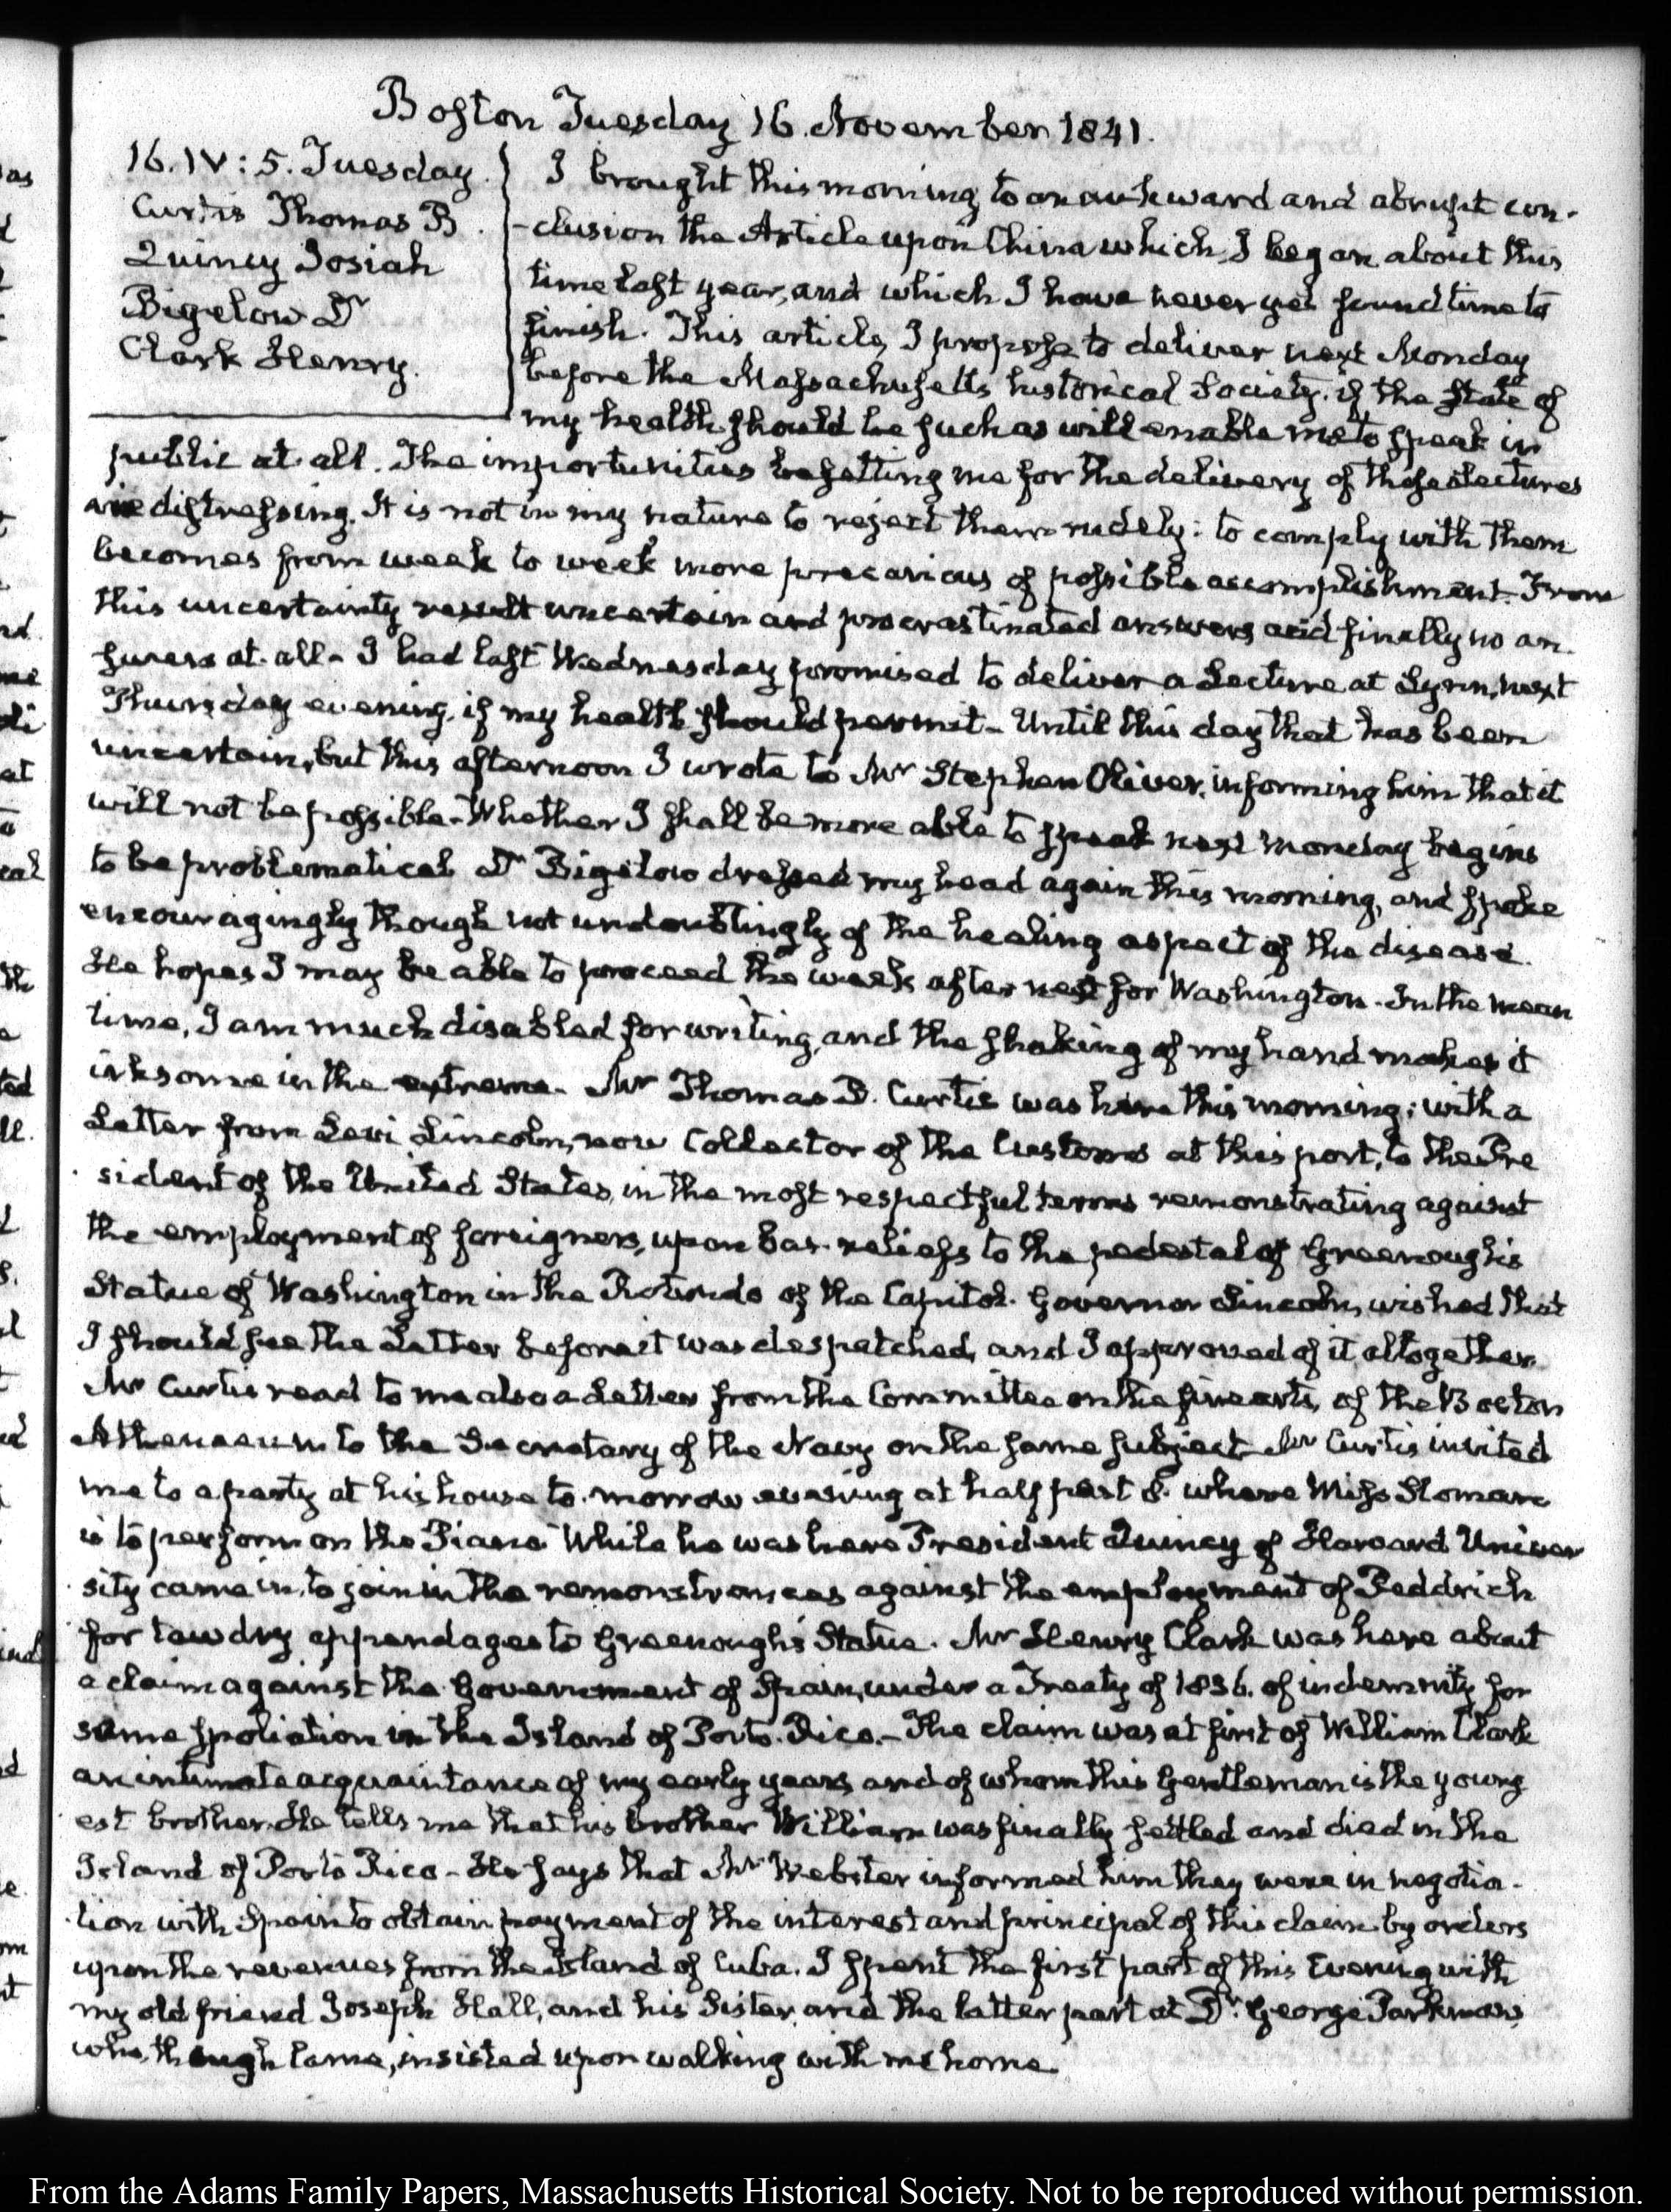 Boston Tuesday 16. November 1841.
16. IV: 5. Tuesday.
Curtis Thomas B.
Quincy Josiah
Bigelow Dr
Clark Henry.
I brought this morning to an aukward and abrupt con-
-clusion the Article upon China which I began about this
time last year, and which I have never yet found time to
finish. This article, I propose to deliver next Monday
before the Massachusetts historical Society. if the state of
my health should be such as will enable me to speak in
public at all. The importunities besetting me for the delivery of these lectures
are distressing. It is not in my nature to reject them rudely: to comply with them
becomes from week to week more precarious of possible accomplishment. From
this uncertainty result uncertain and procrastinated answers and finally no an-
swers at all- I had last Wednesday promised to deliver a Lecture at Lynn, next
Thursday evening, if my health should permit- Until this day that has been
uncertain, but this afternoon I wrote to Mr Stephen Oliver, informing him that it
will not be possible- Whether I shall be more able to speak next Monday begins
to be problematical Dr Bigelow dressed my head again this morning, and spoke
encouragingly though not undoubtingly of the healing aspect of the disease.
He hopes I may be able to proceed the week after next for Washington- In the mean
time, I am much disabled for writing, and the shaking of my hand makes it
irksome in the extreme- Mr Thomas B. Curtis was here this morning; with a
Letter from Levi Lincoln, now Collector of the Customs at this port, to the Pre
sident of the United States, in the most respectful terms remonstrating against
the employment of foreigners, upon bas-reliefs to the pedestal of Greenough's
Statue of Washington in the Rotundo of the Capitol. Governor Lincoln, wished that
I should see the Letter before it was despatched, and I approved of it altogether.
Mr Curtis read to me also a Letter from the Committee on the fine arts, of the Boston
Athenaeum to the Secretary of the Navy on the same subject Mr Curtis invited
me to a party at his house to-morrow evening at half past 8. where Miss Sloman
is to perform on the Piano. While he was here President Quincy of Harvard Univer
sity came in, to join in the remonstrances against the employment of
for tawdry appendages to Greenough's Statue. Mr Henry Clark was here about
a claim against the Government of Spain, under a Treaty of 1836. of indemnity for
some spoliation in the Island of Porto. Rico.- The claim was at first of William Clark
an intimate acquaintance of my early years and of whom this Gentleman is the young
est brother. He tells me that his brother William was finally settled and died in the
Island of Porto Rico- He says that Mr Webster informed him they were in negotia-
tion with Spain to obtain payment of the interest and principal of this claim by orders
upon the revenues from the Island of Cuba. I spent the first part of this Evening with
my old friend Joseph Hall, and his Sister, and the latter part at Dr. George Parkman's,
who, though lame, insisted upon walking with me home
From the Adams Family Papers, Massachusetts Historical Society. Not to be reproduced without permission.